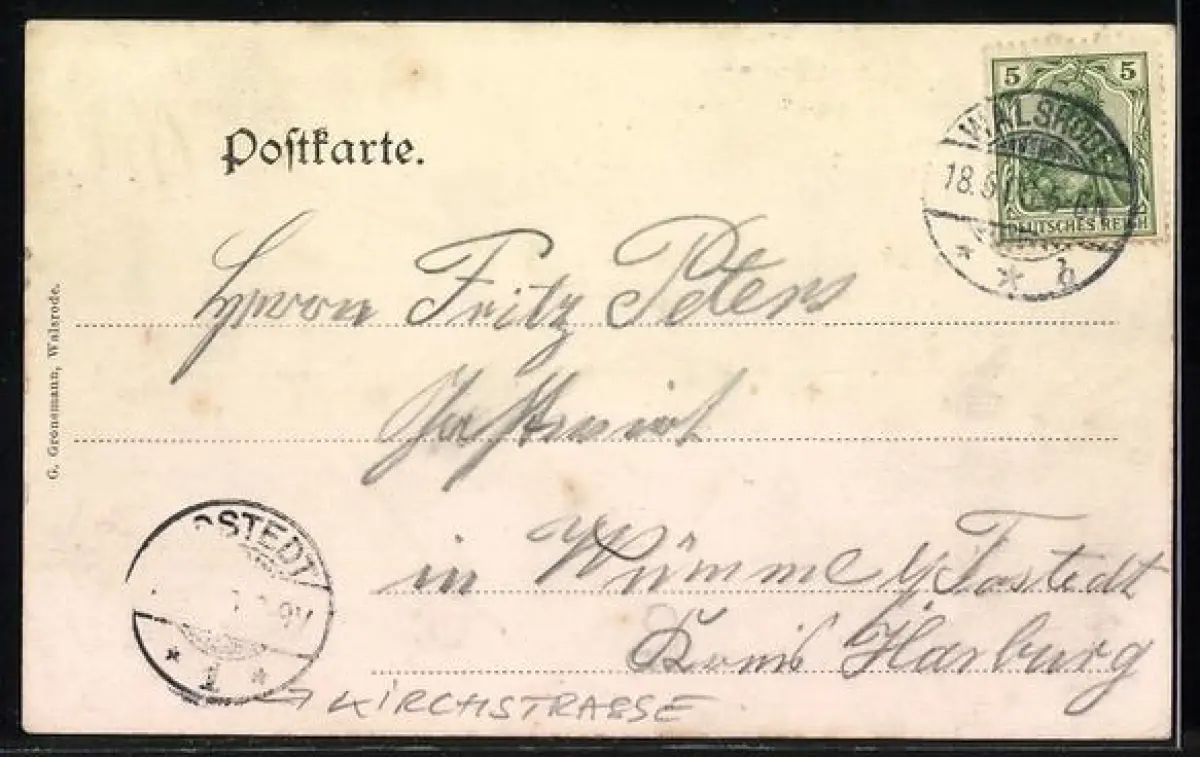 Postkarte.
5 5
DEUTSCHES REICH
WALSRODE
18.5
* * b
Herrn Fritz Peters
Gastwirt
in Wümme b/ Tostedt
Kreis Harburg
G. Gronemann, Walsrode.
OSTEDT
9V
* 1 *
KIRCHSTRASSE